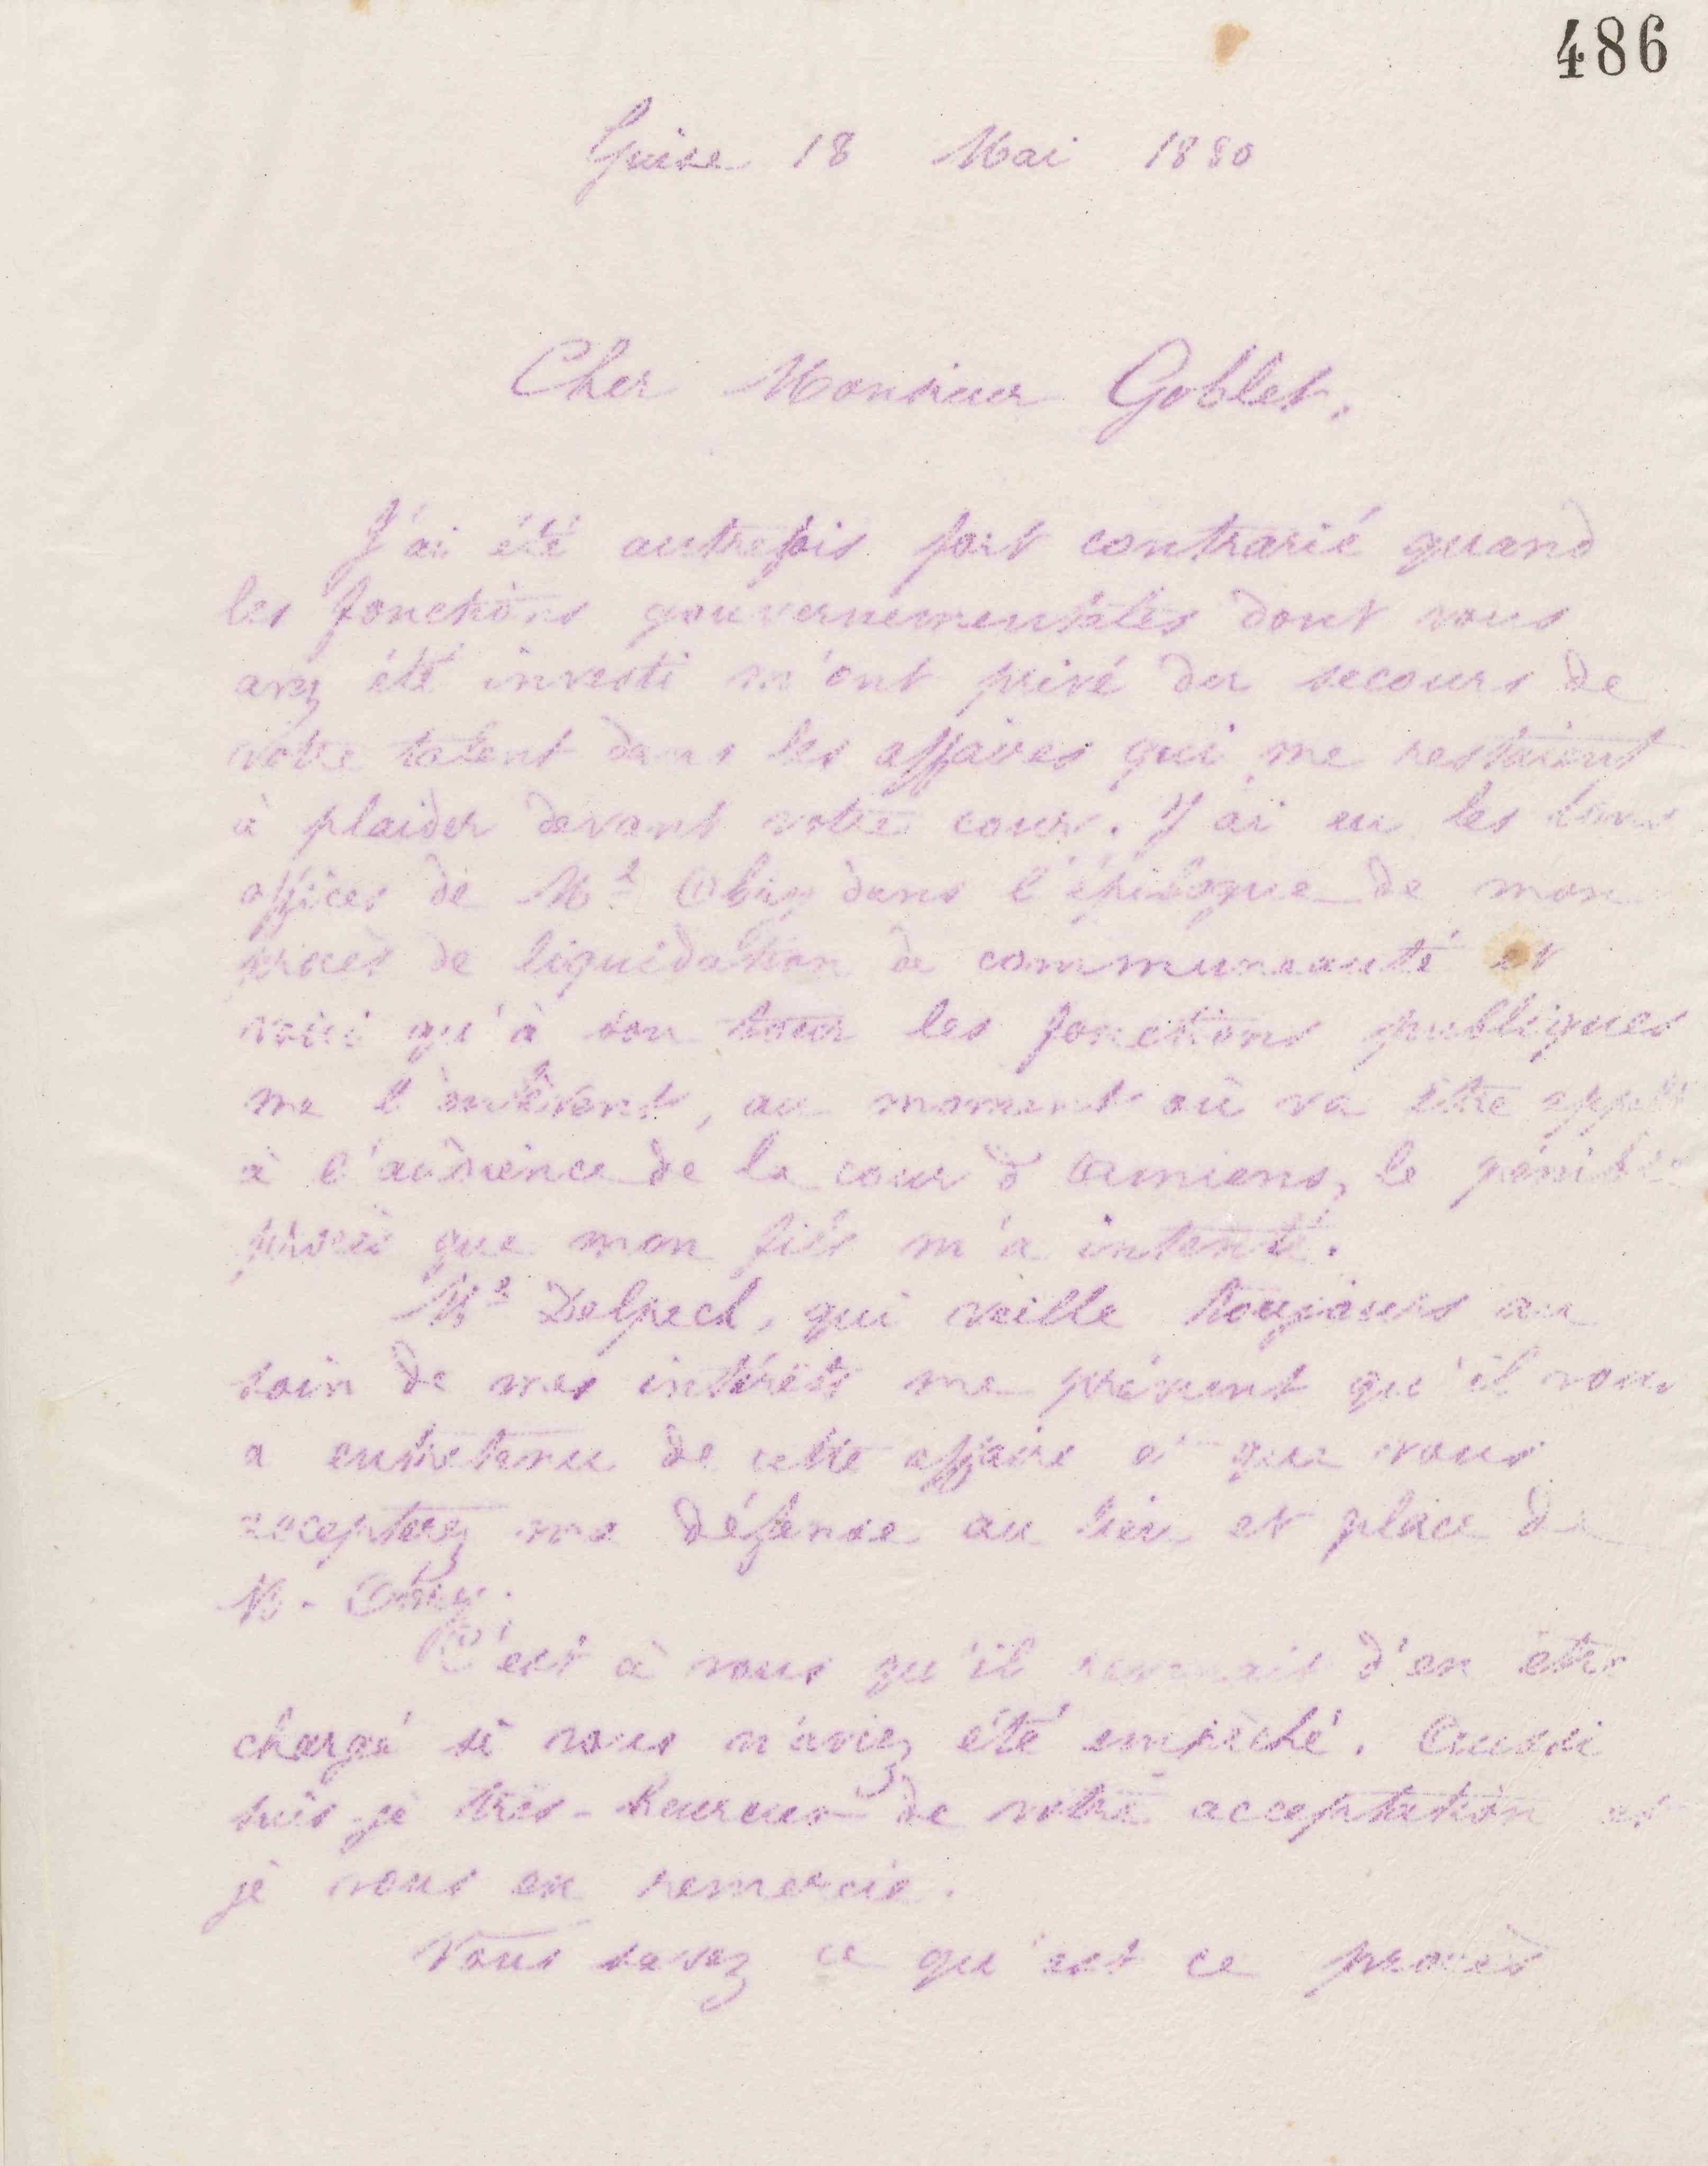 486
Guise 18 Mai 1880
Cher Monsieur Goblet,
J'ai été autrefois fort contrarié quand
les fonctions gouvernementales dont vous
avez été investi m'ont privé du secours de
votre talent dans les affaires qui me restaient
à plaider devant votre cour. J'ai eu les bons
offices de Me Obry dans l'épilogue de mon
procès de liquidation de communauté et
voici qu'à son tour les fonctions publiques
me l'enlèvent, au moment où va être
à l'audience de la cour d'Amiens, le pénible
procès que mon fils m'a intenté.
Me Delpech, qui veille toujours au
soin de mes intérêts me prévient qu'il vous
a entretenu de cette affaire et que vous
accepterez ma défense au lieu et place de
M. Obry.
C'est à vous qu'il revenait d'en être
chargé si vous n'aviez été empêché. Aussi
suis-je très-heureux de votre acceptation et
je vous en remercie.
Vous savez ce qu'est ce procès